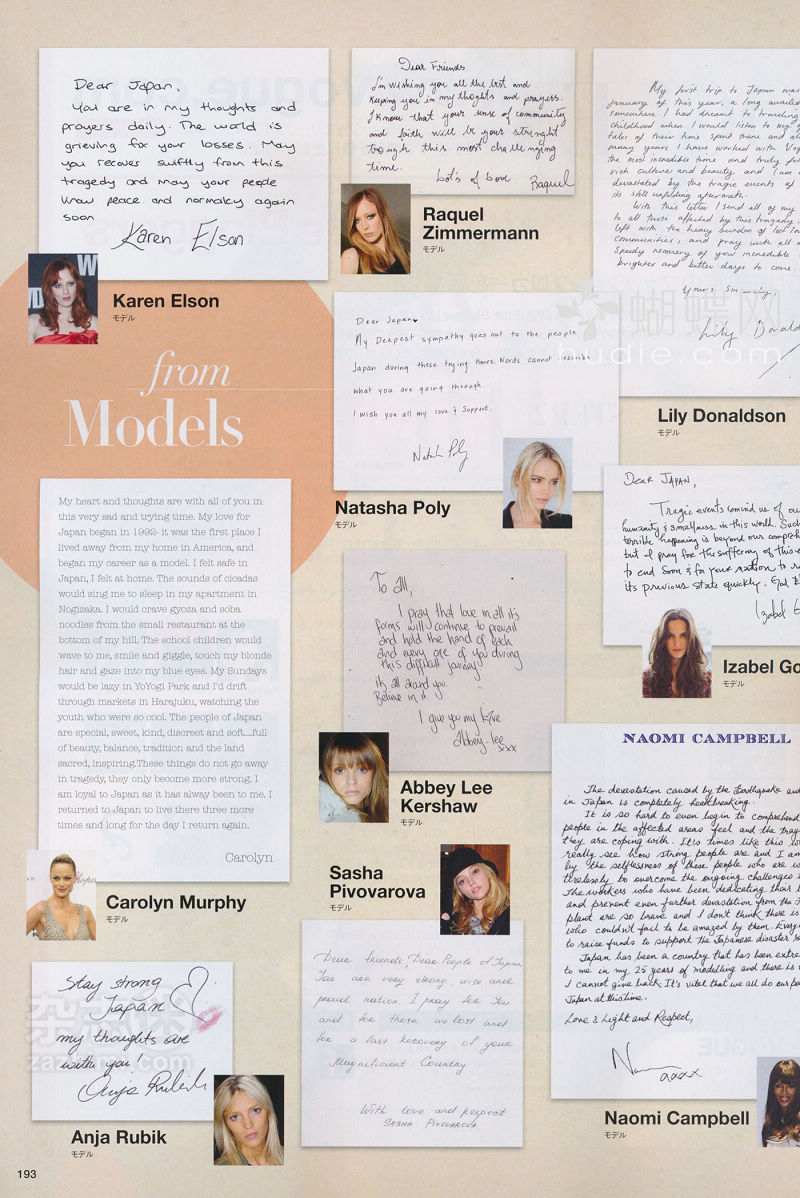 Dear Japan,
You are in my thoughts and
prayers daily. The world is
grieving for your losses. May
you recover swiftly from this
tragedy and may your people
know peace and normalcy again
soon
Karen Elson
Karen Elson
モデル
Dear Friends,
I'm wishing you all the best and
keeping you in my thoghts and prayers.
I know that your sense of community
and faith will be your strenght
trough this most challenging
time.
Lot's of love Raquel
Raquel
Zimmermann
モデル
My first trip to Japan was
January of this year, a long awaited
somewhere I had dreamt to traveling
childhood when I would listen to my
tales of their time spent there and
many years I have worked with Vog
the most incredible time and truly
rich culture and beauty and I am
devastated by the tragic events of
its still unfolding aftermath.
With this letter I send all of my
to all those affected by this tragedy
left with the heavy burden of lost
communities, and pray with all
speedy recovery of your incredible
brighter and better days to come.
Yours Sincerely,
Lily Donald
Lily Donaldson
モデル
蝴蝶网
hudie.com
from
Models
Dear Japan
My Deepest sympathy goes out to the people
Japan during these trying times. Words cannot describe
what you are going through.
I wish you all my love & Support.
Natash Poly
Natasha Poly
モデル
My heart and thoughts are with all of you in
this very sad and trying time. My love for
Japan began in 1992- it was the first place I
lived away from my home in America, and
began my career as a model. I felt safe in
Japan, I felt at home. The sounds of cicadas
would sing me to sleep in my apartment in
Nogizaka. I would crave gyoza and soba
noodles from the small restaurant at the
bottom of my hill. The school children would
wave to me, smile and giggle, touch my blonde
hair and gaze into my blue eyes. My Sundays
would be lazy in YoYogi Park and I'd drift
through markets in Harajuku, watching the
youth who were so cool. The people of Japan
are special, sweet, kind, discreet and soft....full
of beauty, balance, tradition and the land
sacred, inspiring.These things do not go away
in tragedy, they only become more strong. I
am loyal to Japan as it has alway been to me. I
returned to Japan to live there three more
times and long for the day I return again.
Carolyn
Carolyn Murphy
モデル
Dear Japan,
Tragic events remind us of ou
humanity & smallness in this world. Such
terrible happening is beyond our compreh
but I pray for the suffering of this
to end soon & for your nation to
its previous state quickly. God
Izabel G
Izabel Go
モデル
To All,
I pray that love in all it's
forms will continue to prevail
and hold the hand of each
and every one of you during
this difficult journey
it's all around you.
Believe in it.
I give you my love
Abbey-lee
xxx
Abbey Lee
Kershaw
モデル
NAOMI CAMPBELL
The devastation caused by the Earthquake and
in Japan is completely heartbreaking.
It is so hard to even begin to comprehend
people in the affected areas feel and the trag
they are coping with. It's times like this
really see how strong people are and I am
by the selflessness of those people who are
tirelessly to overcome the ongoing challenges
The workers who have been dedicating their
and prevent even further devastation from the
plant are so brave and I don't think there is
who couldn't fail to be amazed by them.
to raise funds to support the Japanese disaster
Japan has been a country that has been extre
to me in my 25 years of modelling and there is
I cannot give back. It's vital that we all do our pa
Japan at this time.
Love & Light and Respect,
xxxx
Naomi Campbell
モデル
Sasha
Pivovarova
モデル
Dear friends, Dear People of Japan
You are very strong, wise and
proud nation. I pray for You
and for those we lost and
for a fast recovery of your
Magnificient Country
With love and respect
SASHA PIVOVAROVA
Stay strong
Japan
my thoughts are
with you!
Anja Rubik
Anja Rubik
モデル
193